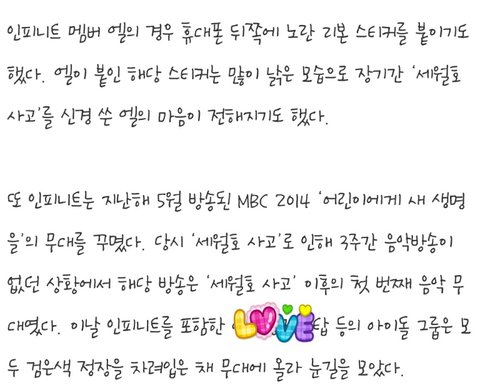 인피니트 멤버 엘의 경우 휴대폰 뒤쪽에 노란 리본 스티커를 붙이기도
했다. 엘이 붙인 해당 스티커는 많이 낡은 모습으로 장기간 '세월호
사고'를 신경 쓴 엘의 마음이 전해지기도 했다.
또 인피니트는 지난해 5월 방송된 MBC 2014 '어린이에게 새 생명
을'의 무대를 꾸몄다. 당시 '세월호 사고'로 인해 3주간 음악방송이
없던 상황에서 해당 방송은 '세월호 사고' 이후의 첫 번째 음악 무
대였다. 이날 인피니트를 포함한 LOVE 등의 아이돌 그룹은 모
두 검은색 정장을 차려입은 채 무대에 올라 눈길을 모았다.